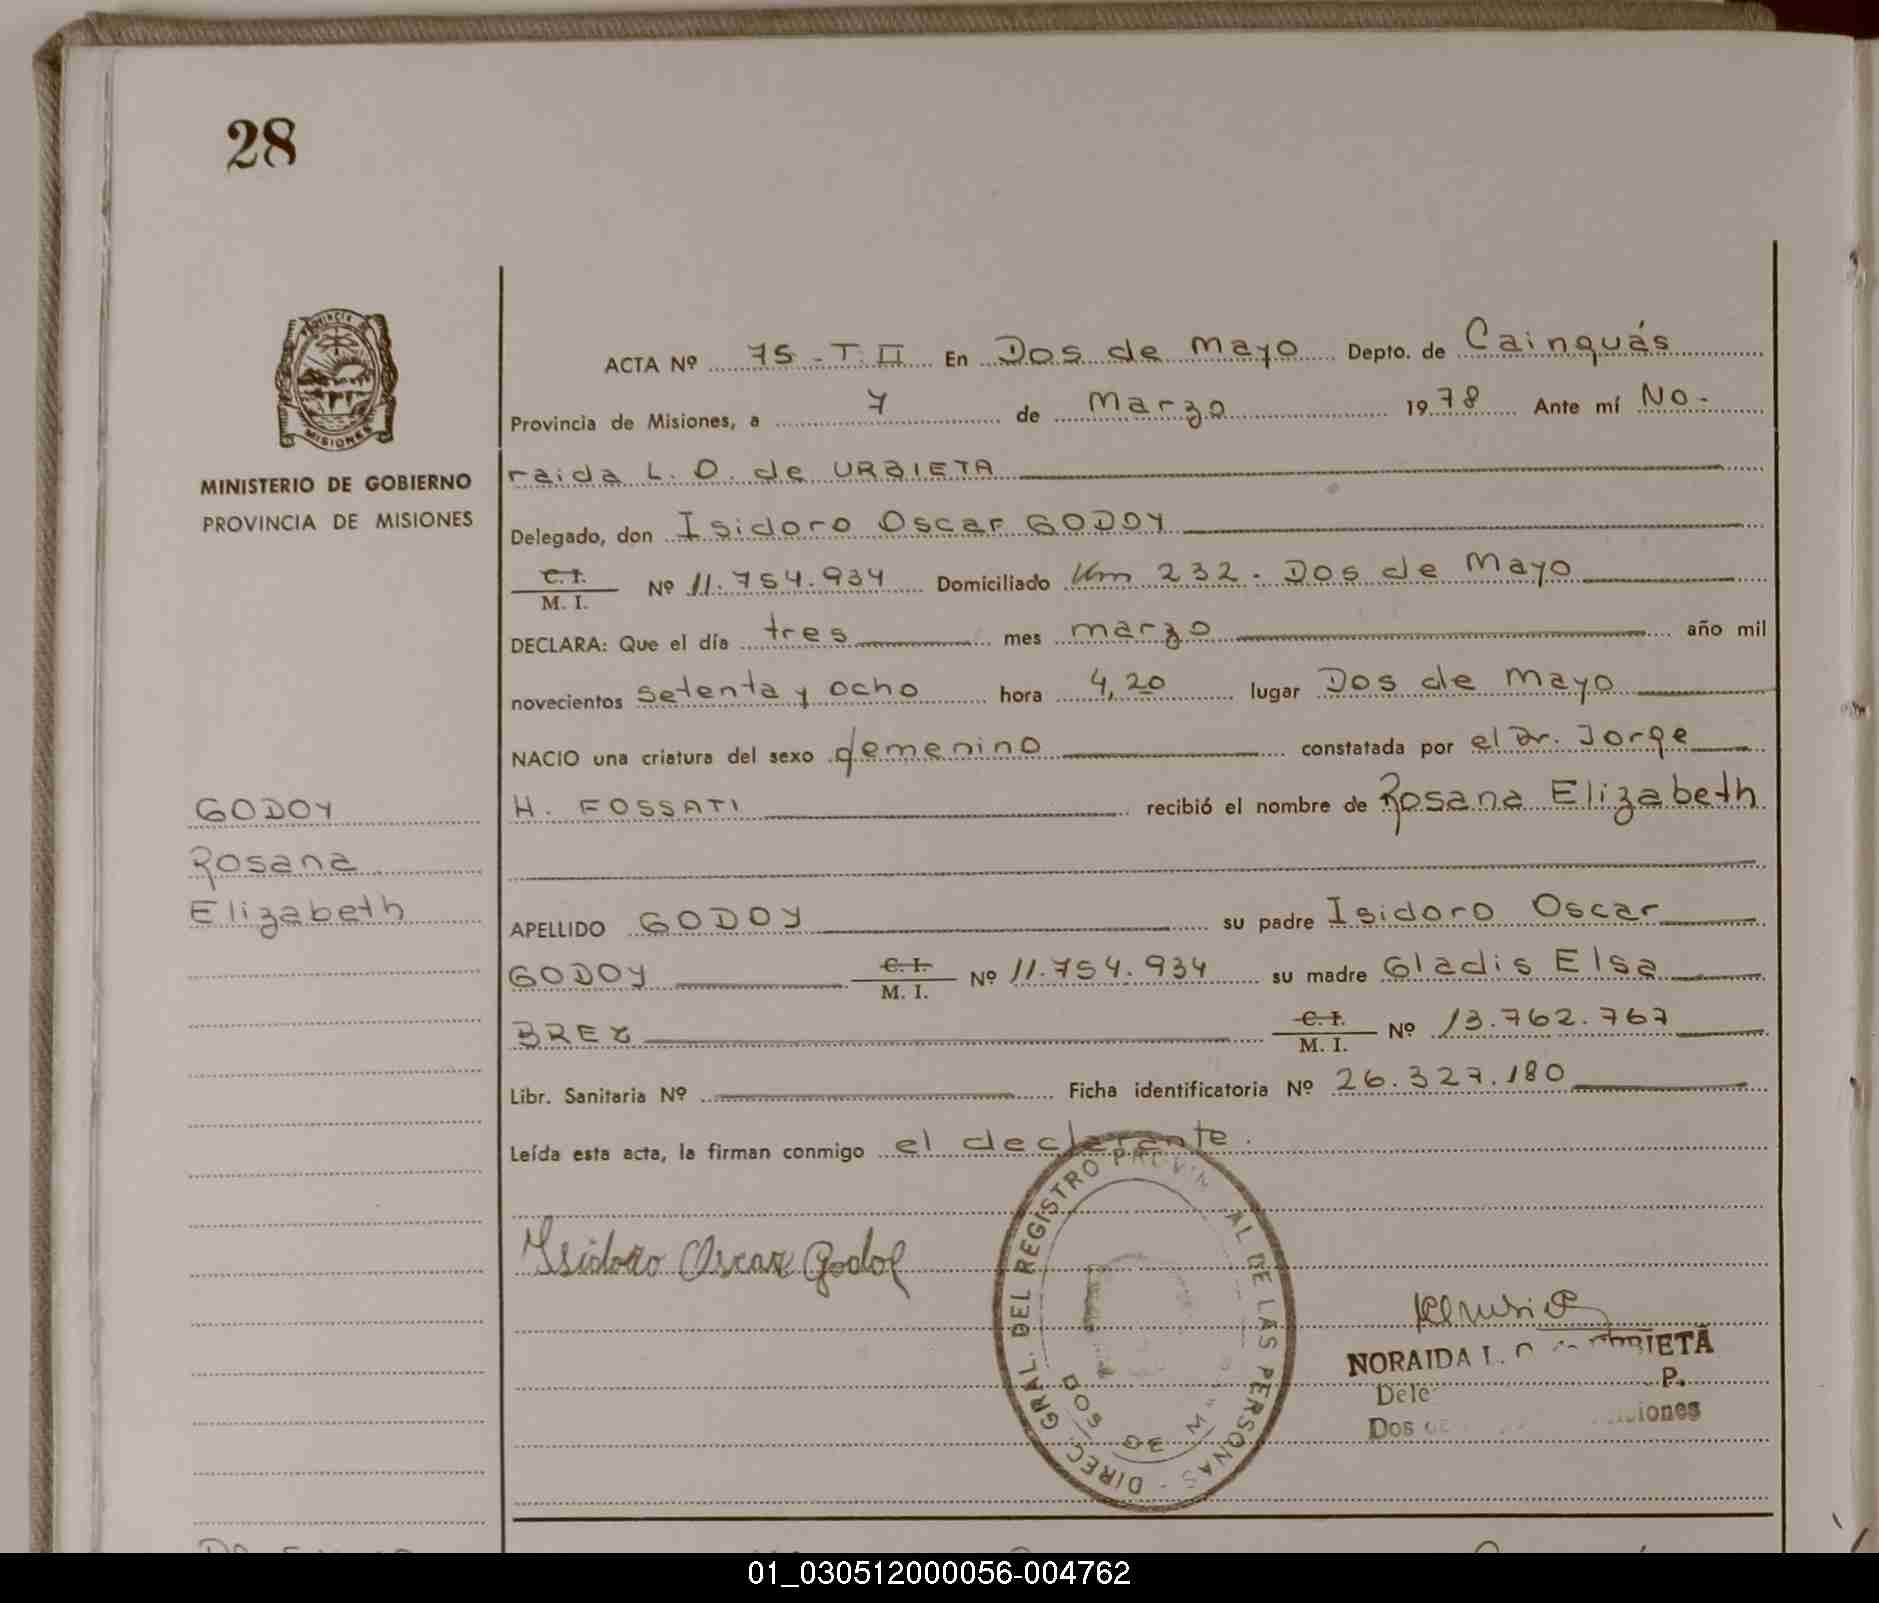 28
PROVINCIA DE
MISIONES
MINISTERIO DE GOBIERNO
PROVINCIA DE MISIONES
GODOY
Rosana
Elizabeth
ACTA Nº 75-T.II En Dos de Mayo Depto. de Cainguás
Provincia de Misiones, a 7 de Marzo 1978 Ante mí No-
raida L. O. de URBIETA
Delegado, don Isidoro Oscar GODOY
C. I.
M. I. Nº 11.754.934 Domiciliado Km 232. Dos de Mayo
DECLARA: Que el día tres mes marzo año mil
novecientos setenta y ocho hora 4,20 lugar Dos de Mayo
NACIO una criatura del sexo femenino constatada por el Dr. Jorge
H. FOSSATI recibió el nombre de Rosana Elizabeth
APELLIDO GODOY su padre Isidoro Oscar
GODOY C. I. M. I. Nº 11.754.934 su madre Gladis Elsa
BREZ C. I. M. I. Nº 13.762.767
Libr. Sanitaria Nº Ficha identificatoria Nº 26.327.180
Leída esta acta, la firman conmigo el declarante.
Isidoro Oscar Godoy
DIREC. GRAL. DEL REGISTRO PROVIN AL DE LAS PERSONAS -
DOS DE M
NORAIDA L. O. URBIETA
Dele P.
Dos de Misiones
01_030512000056-004762